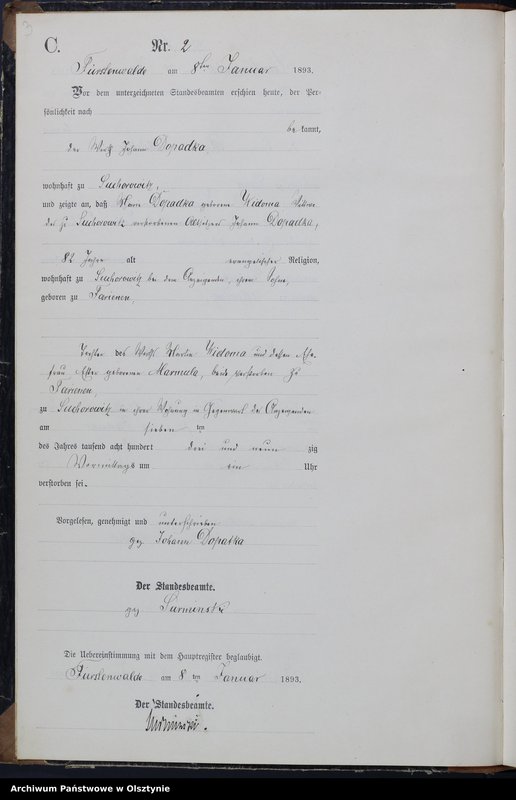 3
C.
Nr. 2
Fürstenwalde am 8ten Januar 1893.
Vor dem unterzeichneten Standesbeamten erschien heute, der Per-
sönlichkeit nach
bekannt,
der Wirth Johann Dopadka
wohnhaft zu Suchorowitz,
und zeigte an, daß Marie Dopadka geborene Kidoma Wittwe
des zu Suchorowitz verstorbenen Altsitzers Johann Dopadka,
82 Jahre alt evangelischer Religion,
wohnhaft zu Suchorowitz bei dem Anzeigenden, ihrem Sohne,
geboren zu Parienen,
Tochter des Wirths Martin Kidoma und dessen Ehe-
frau Esther geborenen Marmula, beide verstorben zu
Parienen,
zu Suchorowitz in ihrer Wohnung in Gegenwart des Anzeigenden
am sieben ten
des Jahres tausend acht hundert drei und neun zig
Vormittags um ein Uhr
verstorben sei.
Vorgelesen, genehmigt und unterschrieben
gez Johann Dopatka
Der Standesbeamte.
gez
Die Uebereinstimmung mit dem Hauptregister beglaubigt.
Fürstenwalde am 8 ten Januar 1893.
Der Standesbeamte.
Archiwum Państwowe w Olsztynie